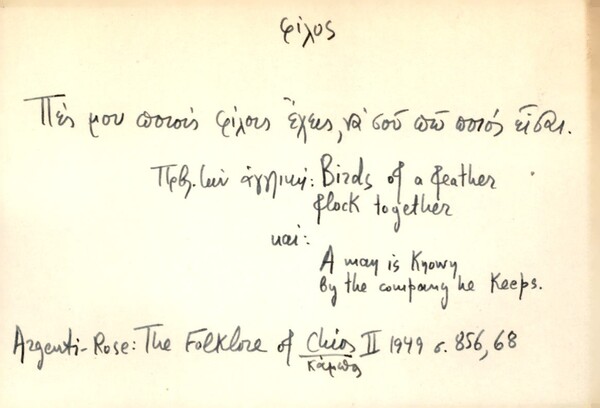 φίλος
Πές μου ποιούς φίλους ἔχεις, νά σοῦ πῶ ποιός εἶσαι.
Πρβ. τήν ἀγγλική: Birds of a feather
flock together
καί:
A man is known
By the company he keeps.
Argenti-Rose: The Folklore of Chios II 1949 σ. 856, 68
Κάμπος